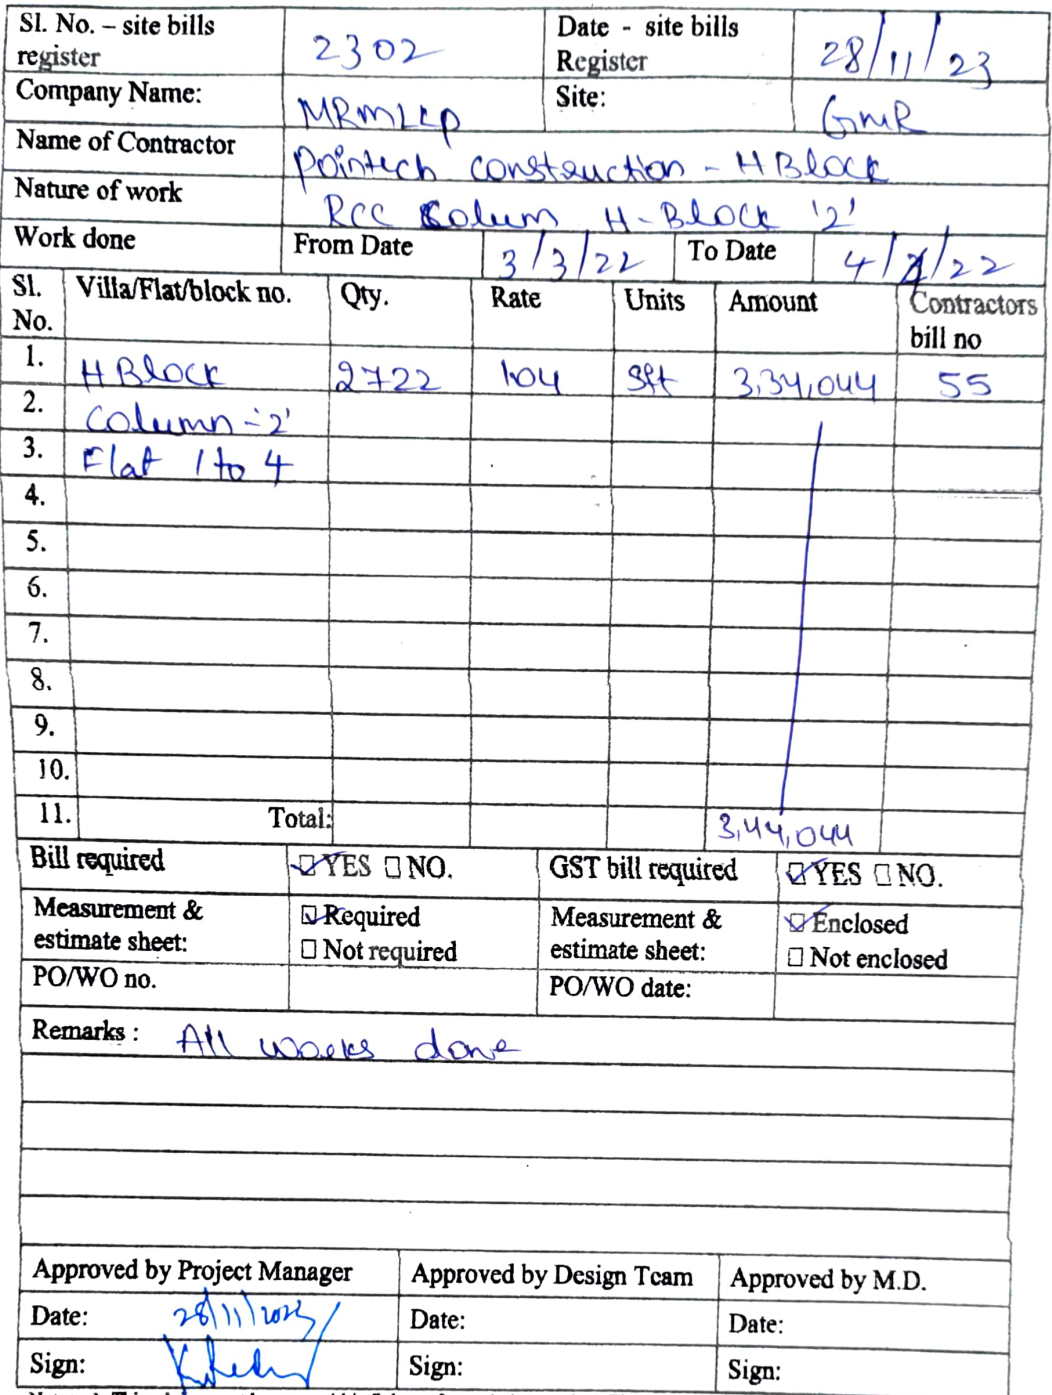 Sl. No. – site bills register 2302 Date - site bills Register 28/11/23
Company Name: MRMLLP Site: GMR
Name of Contractor Pointech construction - H Block
Nature of work RCC Colum H-Block '2'
Work done From Date 3/3/22 To Date 4/4/22
Sl. No. Villa/Flat/block no. Qty. Rate Units Amount Contractors bill no
1. H Block 2722 104 Sft 3,34,044 55
2. Column-'2'
3. Flat 1 to 4
4.
5.
6.
7.
8.
9.
10.
11. Total: 3,44,044
Bill required ☑YES ☐NO. GST bill required ☑YES ☐NO.
Measurement & estimate sheet: ☑Required ☐Not required Measurement & estimate sheet: ☑Enclosed ☐Not enclosed
PO/WO no. PO/WO date:
Remarks : All works done
Approved by Project Manager Approved by Design Team Approved by M.D.
Date: 28/11/2023 Date: Date:
Sign: Sign: Sign: